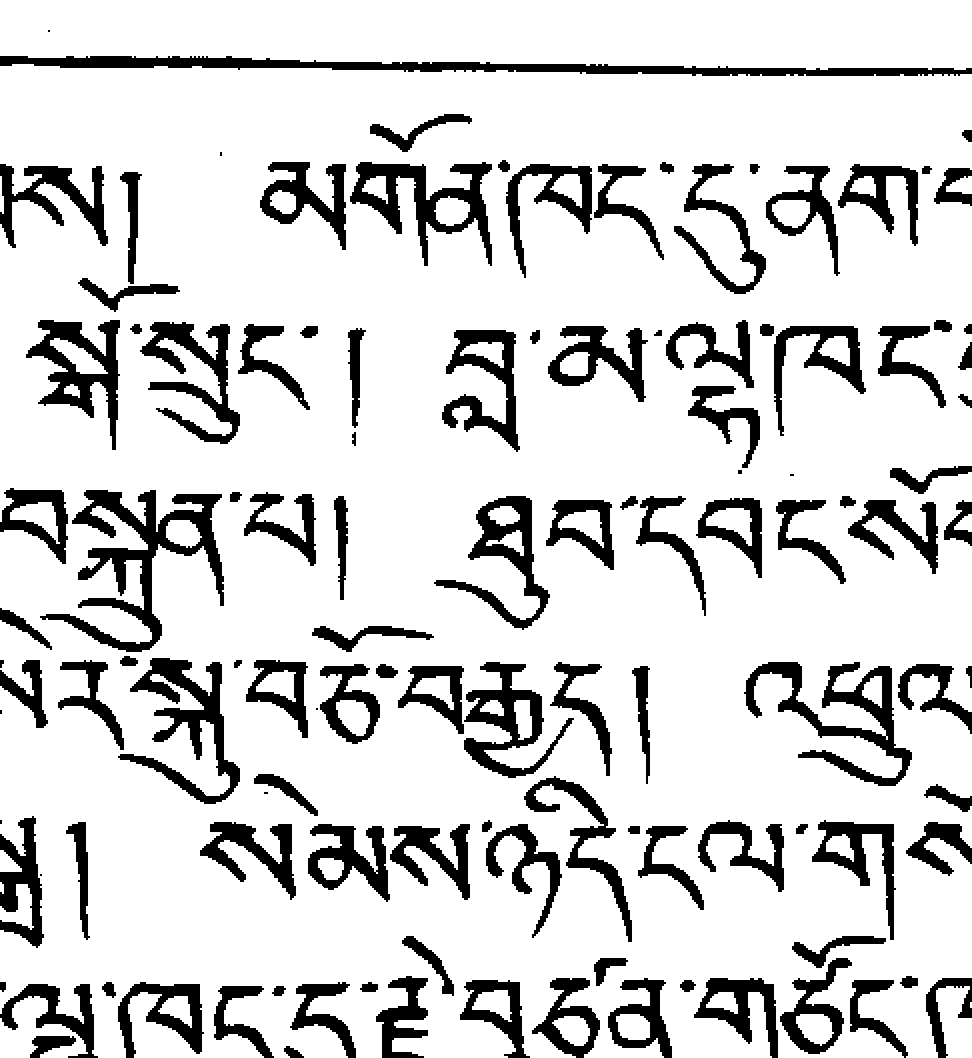 ས། མགོན་ཁང་དུ་ནག
སྒོ་སྲུང་། བླ་མ་ལྷ་ཁང་
བསྐྲུན་པ། ཐུབ་དབང་སོ
སེར་སྐུ་བཅོ་བརྒྱད། འཕྲུལ
སེམས་ཉིད་ངལ་གསོ
ལྷ་ཁང་དུ་རྗེ་བཙུན་གཙོང་ཁ